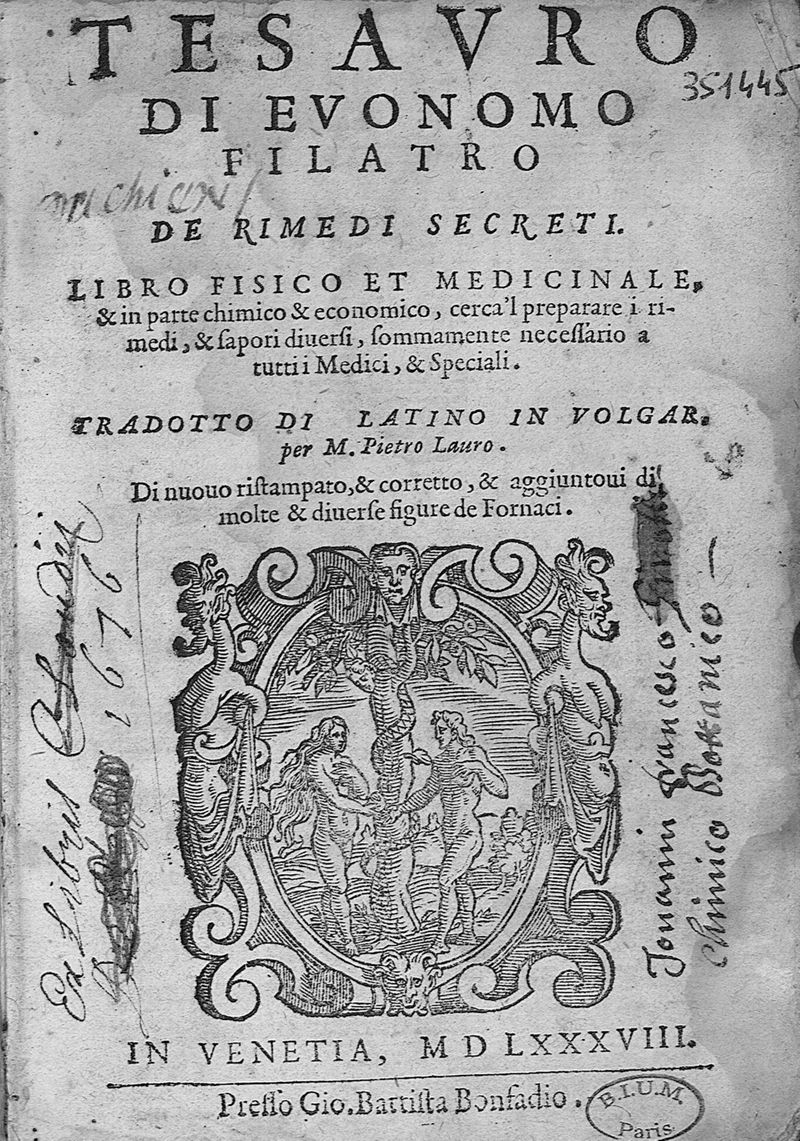 TESAVRO
351445
DI EVONOMO
FILATRO
DE RIMEDI SECRETI.
LIBRO FISICO ET MEDICINALE,
& in parte chimico & economico, cerca'l preparare i ri-
medi, & ſapori diuerſi, ſommamente neceſſario a
tutti i Medici, & Speciali.
TRADOTTO DI LATINO IN VOLGAR.
per M. Pietro Lauro.
Di nuouo riſtampato, & corretto, & aggiuntoui di
molte & diuerſe figure de Fornaci.
Ex Libris
1676
Joanni Francesco
Chimico Bottanico —
IN VENETIA, MDLXXXVIII.
Preſſo Gio. Battiſta Bonfadio.
B.I.U.M.
Paris